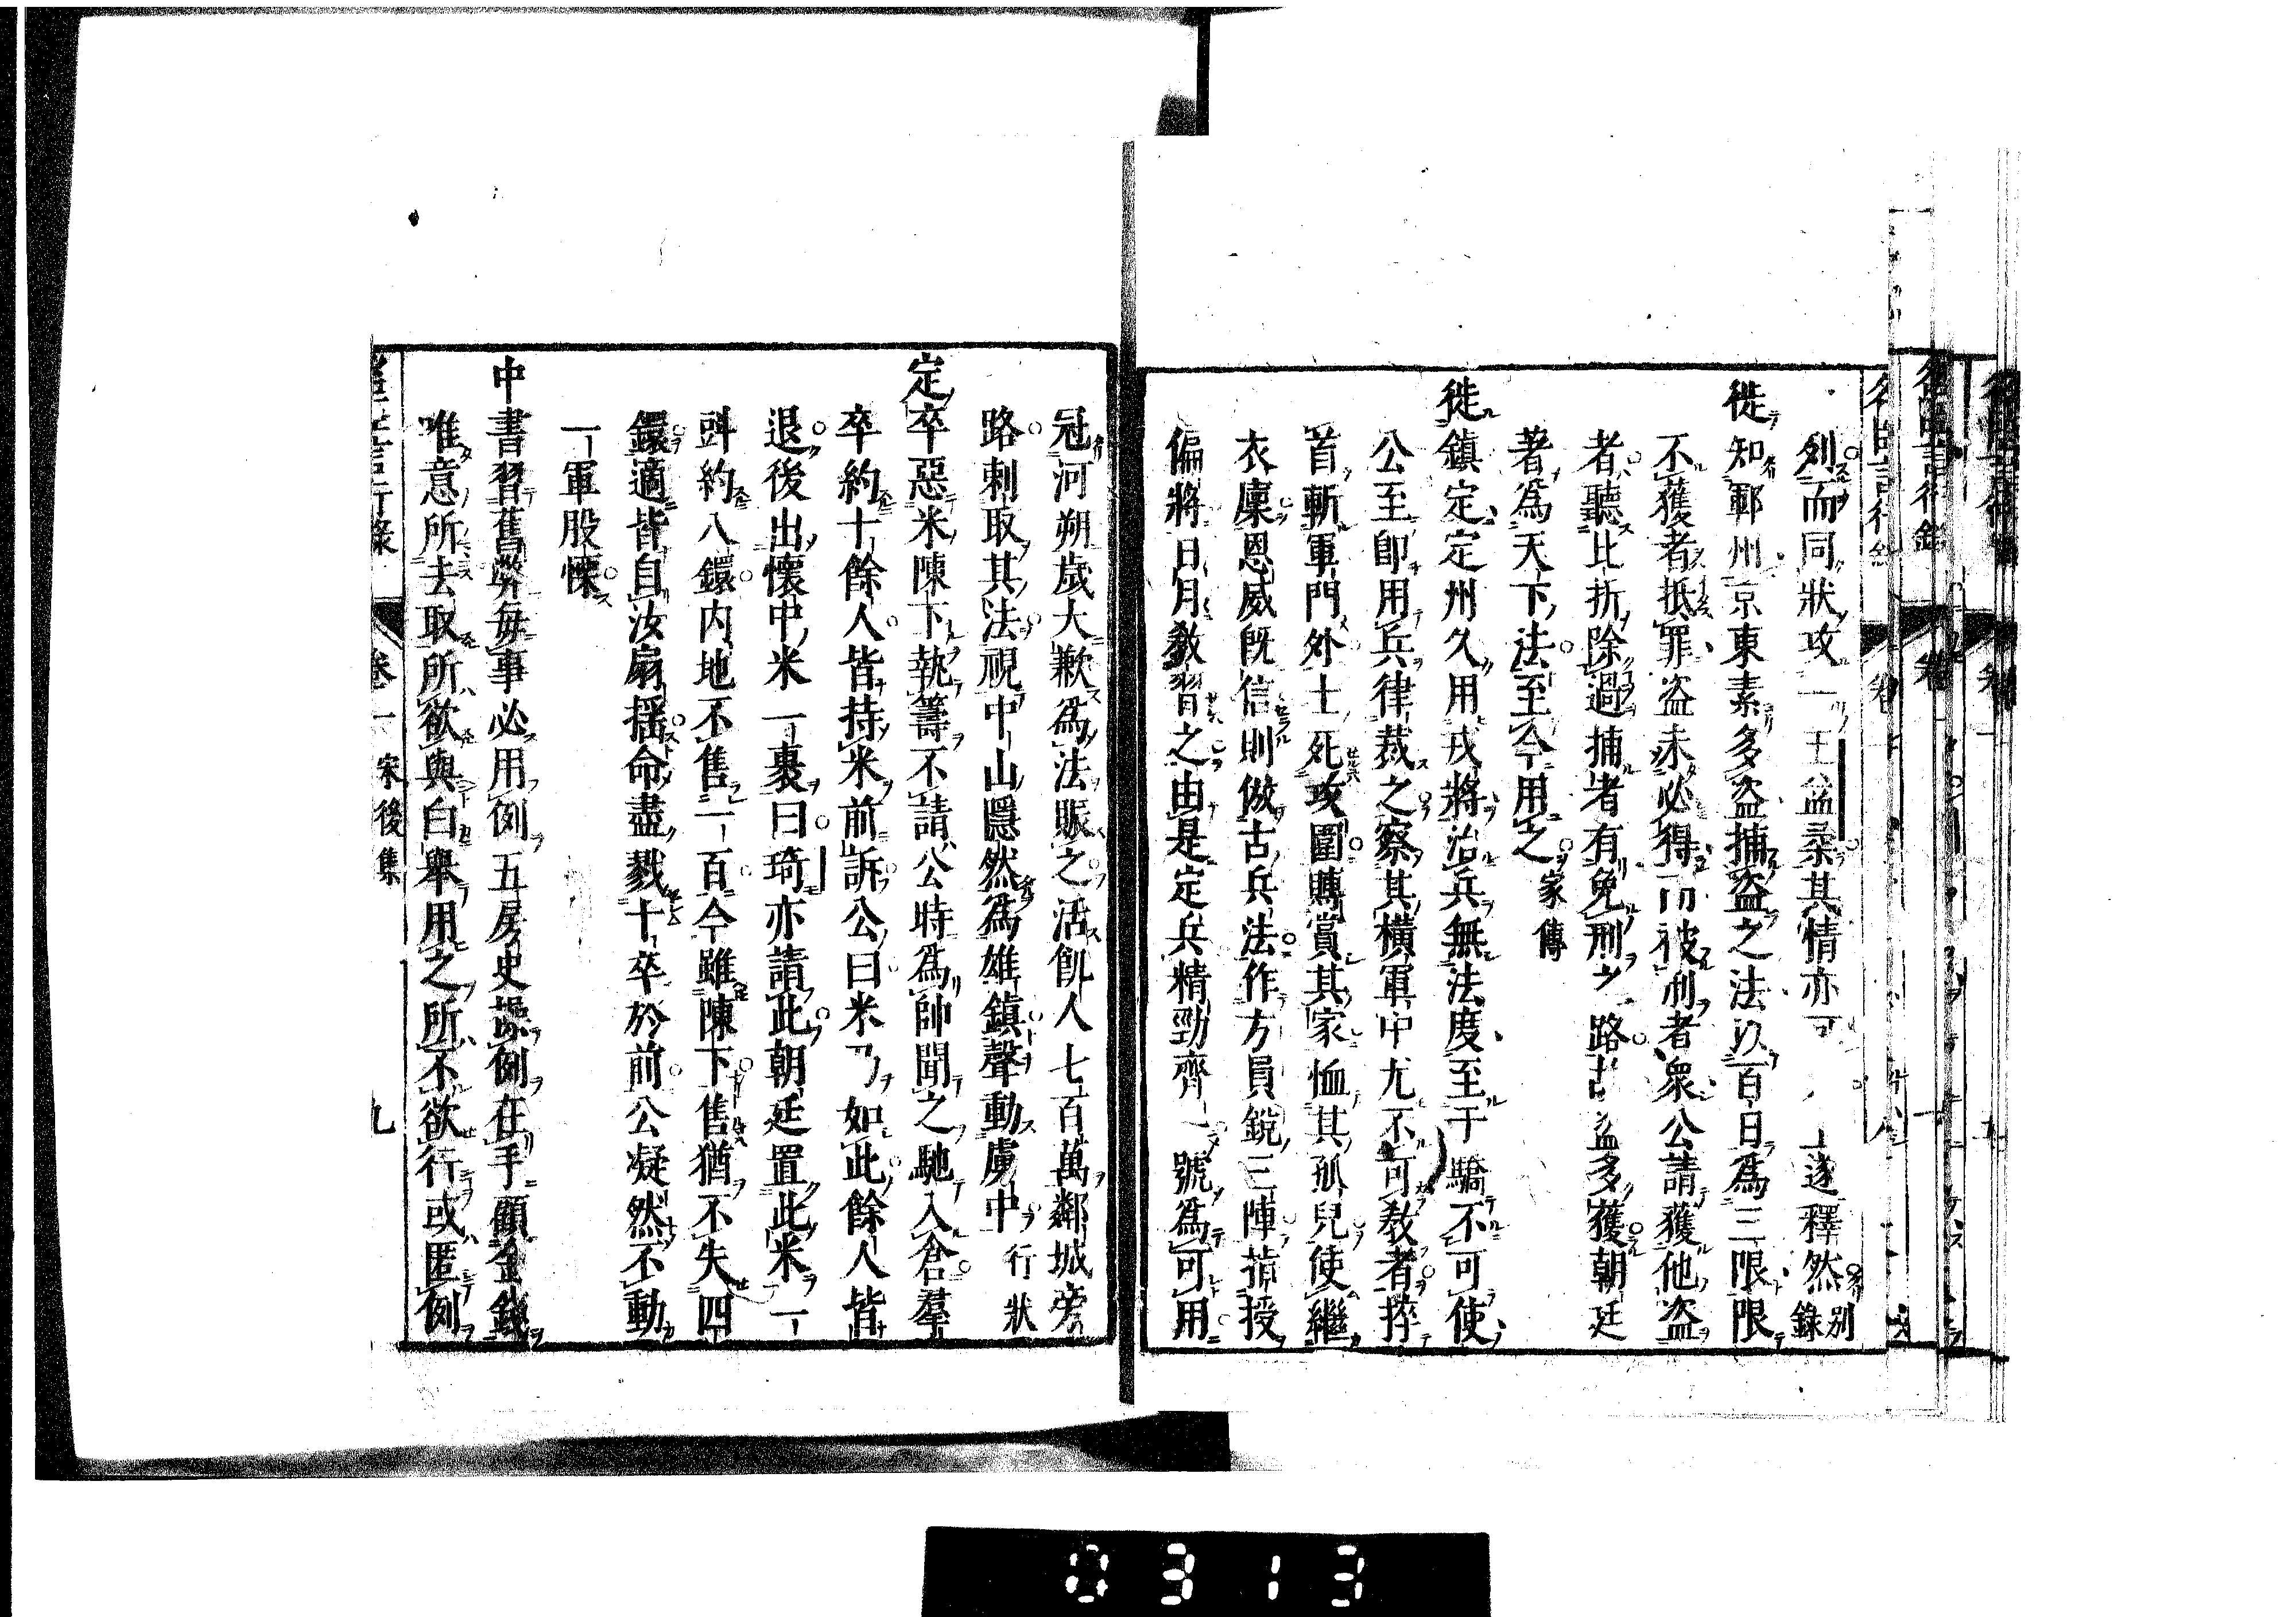 列而同狀攻一王益柔其情亦可遂釋然別錄
徙知鄆州京東素多盜捕盜之法以百日爲三限限
不獲者抵罪盜未必得而被刑者衆公請獲他盜
者聽比折除過捕者有免刑之路故盜多獲朝廷
著爲天下法至今用之家傳
徙鎮定定州久用戎將治兵無法度至于驕不可使
公至卽用兵律裁之察其橫軍中尤不可敎者捽
首斬軍門外士死攻圍賻賞其家恤其孤兒使繼
衣廩恩威旣信則倣古兵法作方員銳三陣指授
偏將日月敎習之由是定兵精勁齊一號爲可用
冠河朔歲大歉爲法賑之活飢人七百萬鄰城旁
路刺取其法視中山隱然爲雄鎮聲動虜中行狀
定卒惡米陳下執籌不請公時爲帥聞之馳入倉羣
卒約十餘人皆持米前訴公曰米乃如此餘人皆
退後出懷中米一裹曰琦亦請此朝廷置此米一
㪷約八鐶内地不售二百今雖陳下售猶不失四
鐶適皆自汝扇揺命盡戮十卒於前公凝然不動
一軍股慄
中書習舊弊每事必用例五房史操例在手顧金錢
唯意所去取所欲與白舉用之所不欲行或匿例
名臣言行錄 卷一 宋後集 九
0313